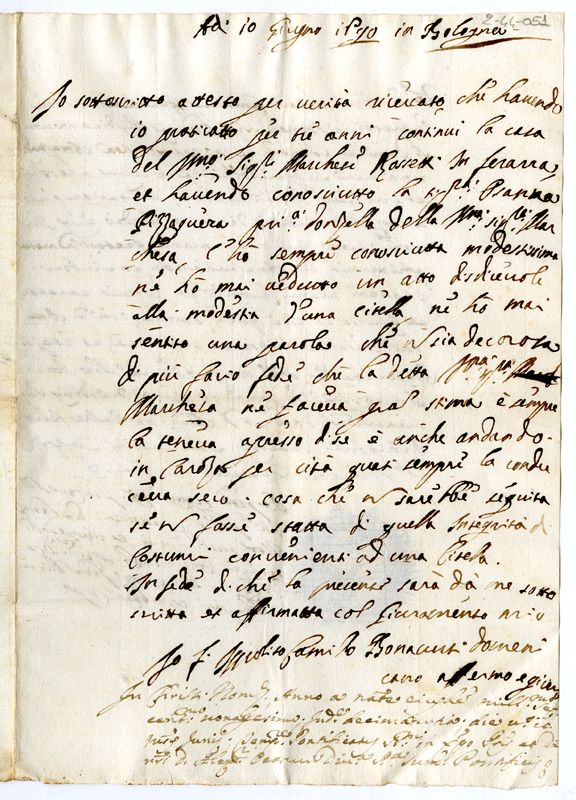 2-44-051
Adì 10 Giugno 1690 in Bologna
Io sottoscritto attesto per verità ricercato che havendo
io praticato per tre anni continui la casa
del Ill.mo Sig.r Marchese Rossetti in Ferarra
et havendo conosciuto la Sig.ra
donzella della Ill.ma Sig.ra Mar
chesa, l'hò sempre conosciuta modestissima
nè hò mai veduto un atto disdicevole
alla modestia d'una citella, nè hò mai
sentito una parola che n sia decorosa
di più facio fede che la detta Ill.ma Sig.ra
Marchesa ne faceva gra stima e sempre
la teneva apresso di se e anche andando
in Caroza per cità quasi sempre la condu
ceva seco. cosa che n sarebbe seguita
se n fosse statta di quella integrità di
costumi convenienti ad una Citella.
In fede di che la presente sarà da me sotto
scritta et affirmatta col giuramento mio
Io F. Ippolito Camilo Bonacursi domeni
cano affermo e giuro
In Christi Nom. Anno a nate eiusdem mill. sex
cent. nonagesimo Ind. decimatertia die
mens Junii, Pontificatus in et D.